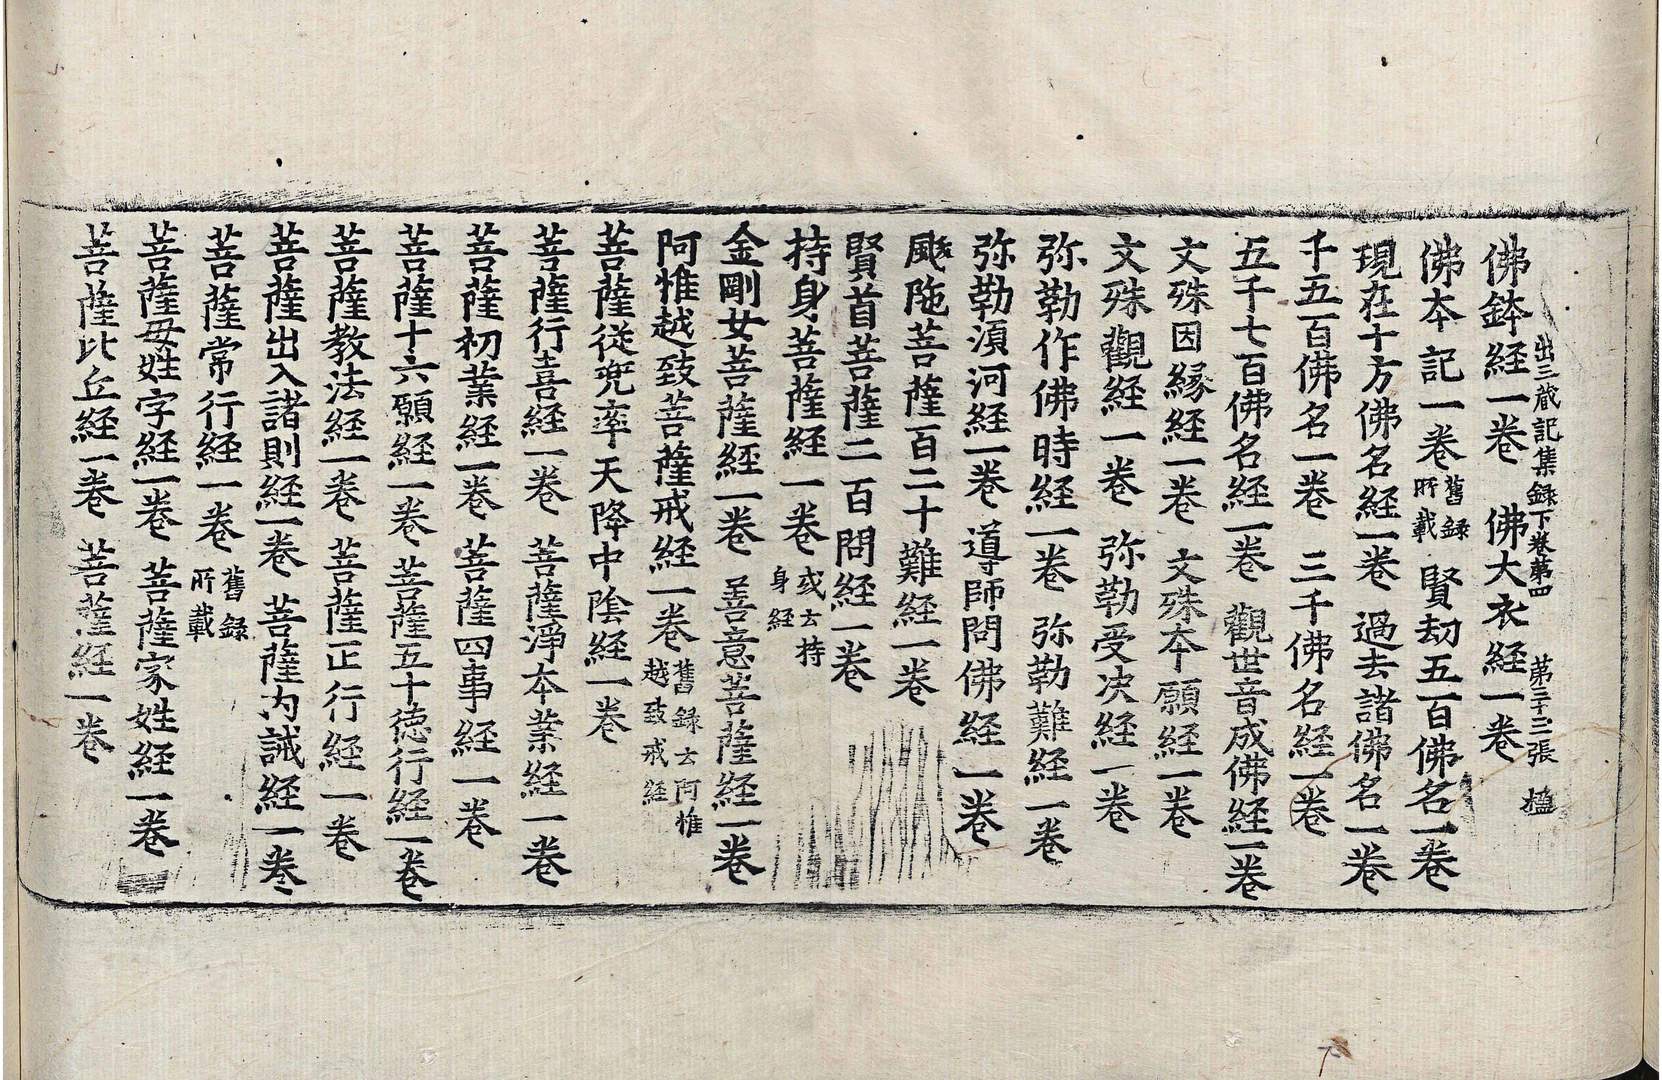 出三蔵記集録下卷第四 第三十三張 楹
佛鉢経一卷 佛大衣経一卷
佛本記一卷 舊録所載 賢劫五百佛名一卷
現在十方佛名経一卷 過去諸佛名一卷
千五百佛名一卷 三千佛名経一卷
五千七百佛名経一卷 觀世音成佛経一卷
文殊因縁経一卷 文殊本願経一卷
文殊觀経一卷 弥勒受决経一卷
弥勒作佛時経一卷 弥勒難経一卷
弥勒湏河経一卷 導師問佛経一卷
颰陁菩薩百二十難経一卷
賢首菩薩二百問経一卷
持身菩薩経一卷 或云持身経
金剛女菩薩経一卷 善意菩薩経一卷
阿惟越致菩薩戒経一卷 舊録云阿惟越致戒経
菩薩従兜率天降中陰経一卷
菩薩行喜経一卷 菩薩淨本業経一卷
菩薩初業経一卷 菩薩四事経一卷
菩薩十六願経一卷 菩薩五十徳行経一卷
菩薩教法経一卷 菩薩正行経一卷
菩薩出入諸則経一卷 菩薩内誡経一卷
菩薩常行経一卷 舊録所載
菩薩母姓字経一卷 菩薩家姓経一卷
菩薩比丘経一卷 菩薩経一卷